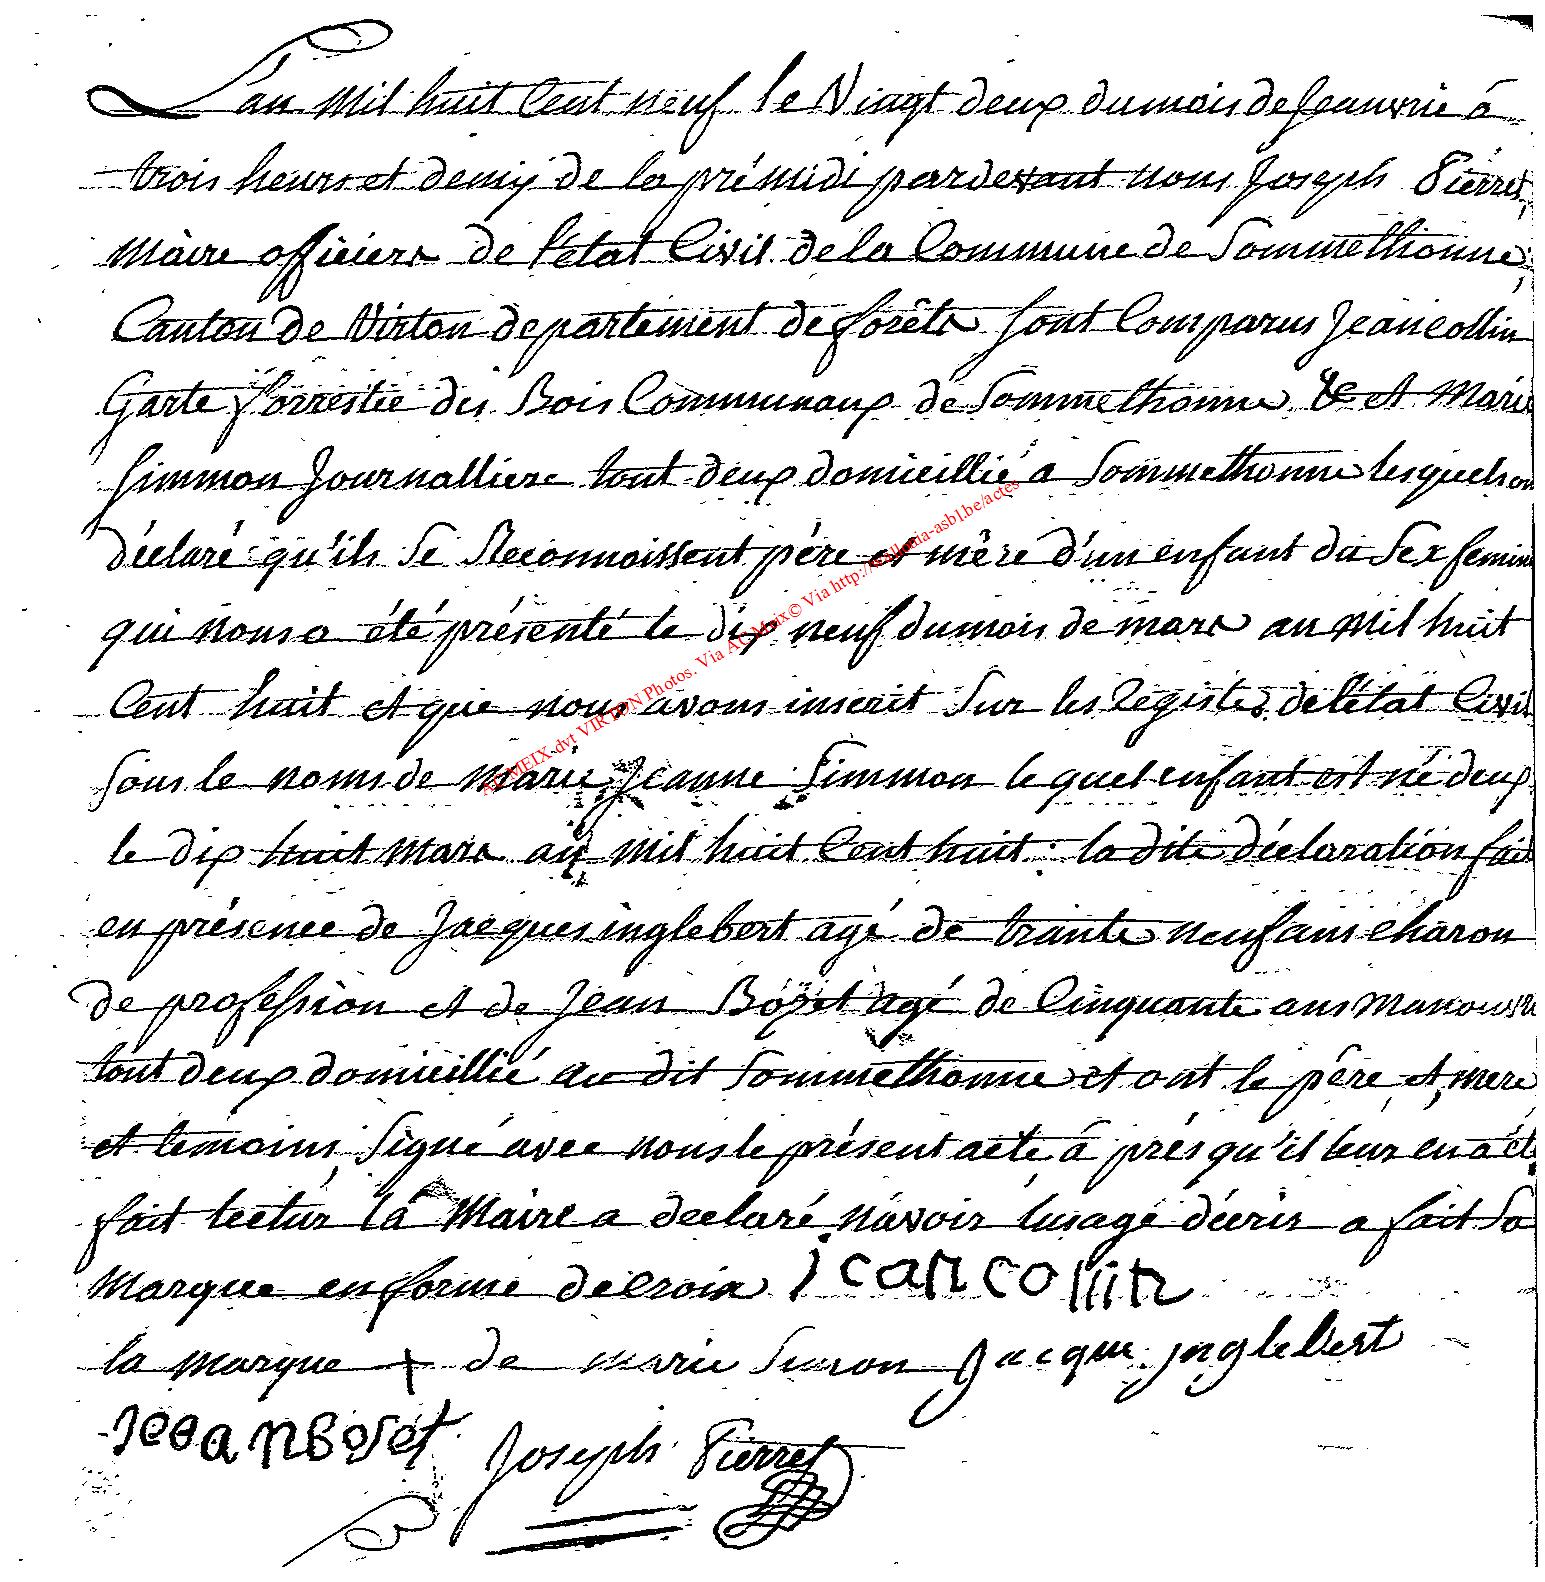 L'an mil huit Cent neuf le Vingt deux du mois de Jeanvrie à
trois heurs et demij de la prémidi pardevant nous Joseph Pierret
maire officiers de l'état Civil de la Commune de Sommethonne,
Canton de Virton departement de forêts sont Comparus Jean collin
Garte forrestie des Bois Communaux de Sommethonne & et Marie
Simmon Journalliere tout deux domicillié a Sommethonne lesquels on
déclaré qu'ils se Reconnoissent père et mêre d'un enfant du Sex feminin
qui nous a été présenté le dix neuf du mois de mars an mil huit
Cent huit et que nous avons inscrit Sur les Registes de l'état Civil
sous le noms de marie Jeanne Simmon le quel enfant est né deux
le dix huit mars an mil huit Cent huit : la dite déclaration fait
en présence de Jacques inglebert agé de trante neuf ans charon
de profession et de Jean Bozet agé de Cinquante ans manouvre
tout deux domicillié au dit Sommethonne et ont le père et mere
et temoins Signé avec nous le présent acte à près qu'il leur en a été
fait lectur la Maire a declaré n'avoir lusage décrir a fait Sa
Marque en forme de croix jean collin
la marque + de marie Simon Jacque jnglebert
jeean Boset Joseph Pierret
AC MEIX-dvt VIRTON Photos. Via AC Meix© Via http://wallonia-asbl.be/actes